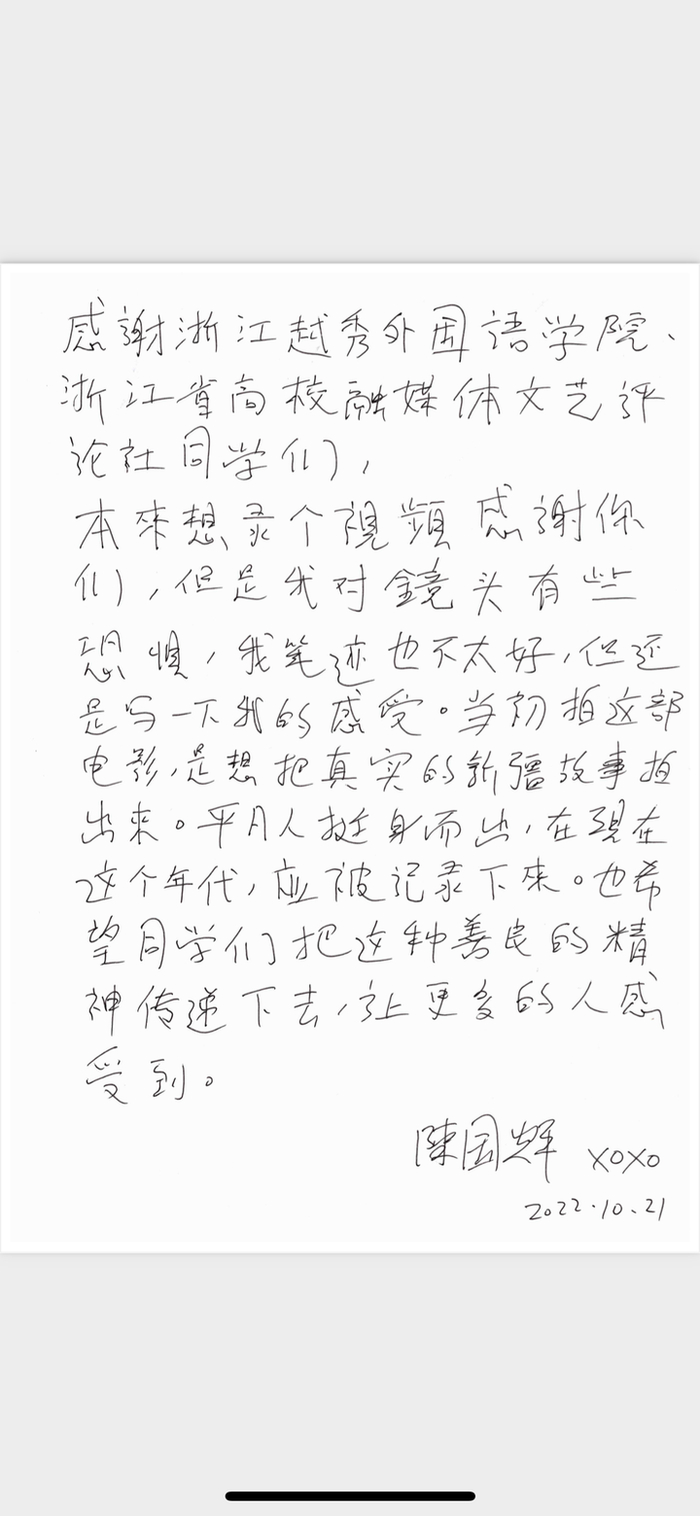 感謝浙江越秀外国語学院、
浙江省高校融媒体文艺评
论社同学们，
本來想录个視頻感謝你
们，但是我对鏡头有些
恐惧，我笔迹也不太好，但还
是写一下我的感受。当初拍这部
电影，是想把真实的新疆故事拍
出来。平凡人挺身而出，在現在
这个年代，应被记录下来。也希
望同学们把这种善良的精
神传递下去，让更多的人感
受到。
陳国辉 xoxo
2022.10.21